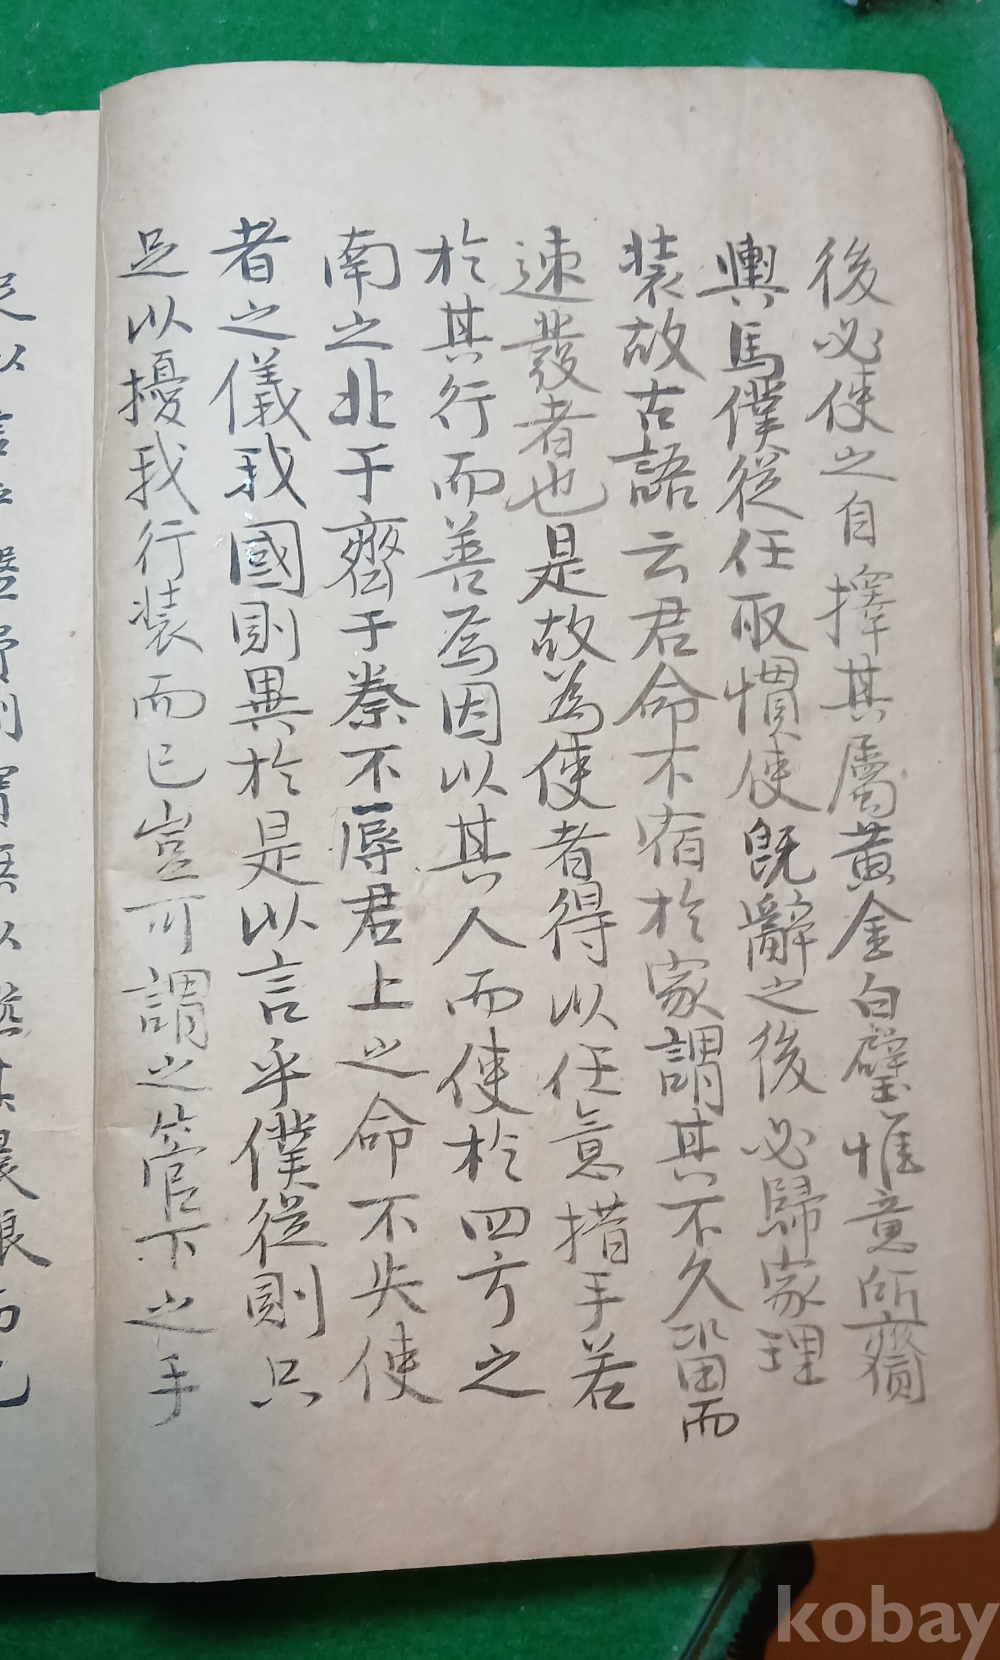 後必使之自擇其屬黃金白璧惟意所齎
輿馬僕從任取慣使既辭之後必歸家理
装故古語云君命不宿於家謂其不久留而
速發者也是故為使者得以任意措手若
於其行而善為因以其人而使於四方之
南之北于齊于秦不辱君上之命不失使
者之儀我國則異於是以言乎僕從則只
足以擾我行装而已豈可謂之管下之手
kobay